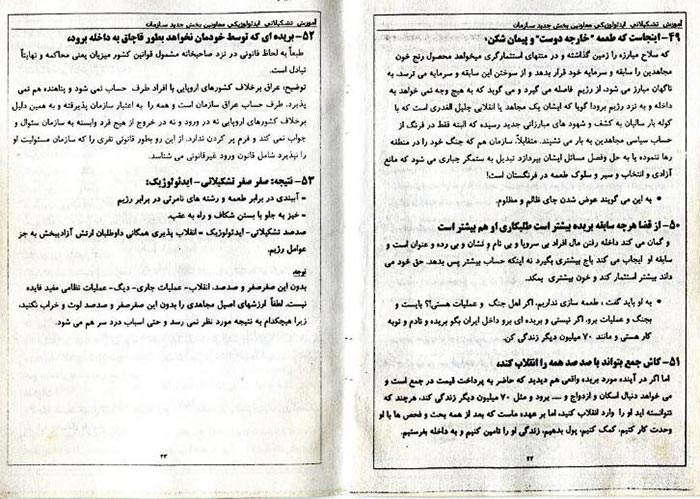 آموزش تشکیلاتی ایدئولوژیکی معاونین بخش جدید سازمان
۴۹- اینجاست که طعمه "خارجه دوست" و پیمان شکن:
که سلاح مبارزه را زمین گذاشته و در منتهای استثمارگری میخواهد محصول رنج خون
مجاهدین را سابقه و سرمایه خود قرار بدهد و از سوختن این سابقه و سرمایه می ترسد، به
ناگهان مبارز می شود، از رژیم فاصله می گیرد و می گوید که به هیچ وجه نمی خواهد به
داخله و به نزد رژیم برود! گویا که ایشان یک مجاهد یا انقلابی جلیل القدری است که با
کوله بار سالیان به کشف و شهود های مبارزاتی جدید رسیده که البته فقط در فرنگ از
حساب سیاسی مجاهدین به بار می نشیند. متقابلاً، سازمان هم که جنگ خود را در منطقه
رها ننموده یا به حل وفصل مسائل ایشان بپردازد تبدیل به ستمگر جباری می شود که مانع
آزادی و انتخاب و سیر و سلوک طعمه در فرنگستان است!
• به این می گویند عوض شدن جای ظالم و مظلوم.
۵۰- از قضا هرچه سابقه بریده بیشتر است طلبکاری او هم بیشتر است
و گمان می کند داخله رفتن مال افراد بی سروپا و بی نام و نشان و بی رده و عنوان است و
سابقه او ایجاب می کند باج بیشتری بگیرد نه اینکه حساب بیشتر پس بدهد. حق خود می
داند بیشتر استثمار کند و خون بیشتری بمکد.
• به او باید گفت، طعمه سازی نداریم. اگر اهل جنگ و عملیات هستی؟؟ بایست و
بجنگ و عملیات برو، اگر نیستی و بریده ای برو داخل ایران بگو بریده و نادم و توبه
کار هستی و مانند ۷۰ میلیون دیگر زندگی کن.
۵۱- کاش جمع بتواند با صد صد همه را انقلاب کند،
اما اگر در آینده مورد بریده واقعی هم دیدید که حاضر به پرداخت قیمت در جمع است و
می خواهد دنبال اسکان و ازدواج و .... برود و مثل ۷۰ میلیون دیگر زندگی کند، هرچند که
نتوانسته اید او را وارد انقلاب کنید، اما بر عهده ماست که بعد از همه بحث و فحص ها با او
وحدت کار کنیم، کمک کنیم، پول بدهیم، زندگی او را تامین کنیم و به داخله بفرستیم.
۲۲
آموزش تشکیلاتی ایدئولوژیکی معاونین بخش جدید سازمان
۵۲- بریده ای که توسط خودمان نخواهد بطور قاچاق به داخله برود،
طبعاً به لحاظ قانونی در نزد صاحبخانه مشمول قوانین کشور میزبان یعنی محاکمه و نهایتاً
تبادل است.
توضیح، عراق برخلاف کشورهای اروپایی با افراد طرف حساب نمی شود و پناهنده هم نمی
پذیرد. طرف حساب عراق سازمان است و همه را به اعتبار سازمان پذیرفته و به همین دلیل
برخلاف کشورهای اروپایی نه در ورود و نه در خروج از هیچ فرد وابسته به سازمان سئوال و
جواب نمی کند و فرم پر کردن ندارد. از این رو بطور قانونی نفری را که سازمان مسئولیت او
را نپذیرد شامل قانون ورود غیرقانونی می شناسد.
۵۳- نتیجه: صفر صفر تشکیلاتی- ایدئولوژیک:
= آببندی در برابر طعمه و رشته های نامرئی در برابر رژیم
= خیز به جلو با بستن شکاف و راه به عقب.
صدصد تشکیلاتی- ایدئولوژیک = انقلاب پذیری همگانی داوطلبان ارتش آزادیبخش به جز
عوامل رژیم.
توجه
بدون این صفرصفر و صدصد، انقلاب- عملیات جاری- دیگ- عملیات نظامی مفید فایده
نیست. لطفاً ارزشهای اصیل مجاهدی را بدون این صفرصفر و صدصد لوث و خراب نکنید،
زیرا هیچکدام به نتیجه مورد نظر نمی رسد و حتی اسباب درد سر هم می شود.
۲۳